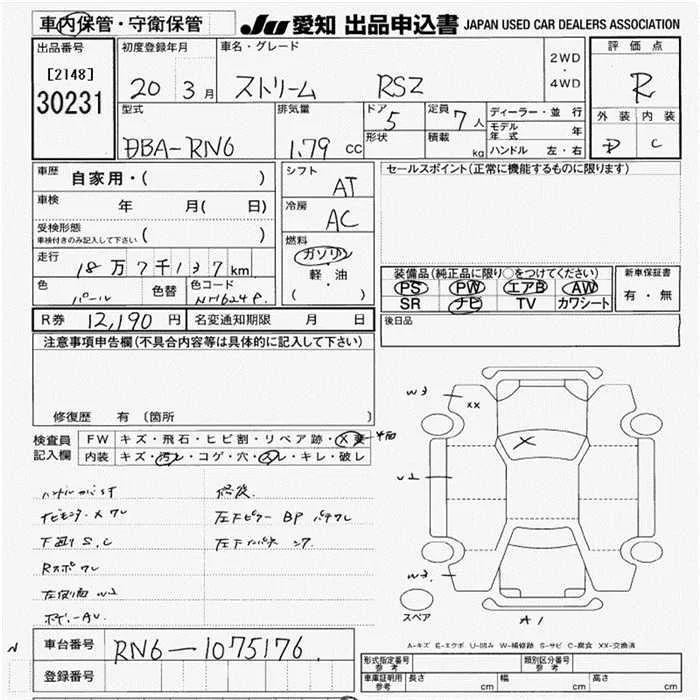 車内保管・守衛保管 JU 愛知 出品申込書 JAPAN USED CAR DEALERS ASSOCIATION
出品番号 初度登録年月 車名・グレード 2WD ・ 4WD 評価点
[2148] 30231 20 3月 ストリーム RSZ R
型式 DBA-RN6 排気量 1.79 CC ドア 5 定員 7人 ディーラー・並 行
形状 積載 kg モデル年式 年
ハンドル 左・右
外装 内装
D C
車歴 自家用・( )
車検 年 月( 日)
受検形態 車検付きのみ記入して下さい ( )
走行 18万7千137km
色 パール 色替 色コード NH624P
シフト AT
冷房 AC
燃料 ガソリン
軽・油
( )
セールスポイント(正常に機能するものに限ります)
装備品(純正品に限り○をつけてください)
PS PW エアB AW
SR ナビ TV カワシート
新車保証書
有・無
R券 12,190円 名変通知期限 月 日
後日品
注意事項申告欄(不具合内容等は具体的に記入して下さい)
修復歴 有 〔箇所 〕
検査員記入欄 FW キズ・飛石・ヒビ割・リペア跡・X要
内装 キズ・汚レ・コゲ・穴・スレ・キレ・破レ
修復
ナビモニター X ワレ
左下ピラー BP
下廻り S.C
Rスポ ワレ
W3
XX
X
W2
W3
スペア
A1
A-キズ E-エクボ U-凹み W-補修跡 S-サビ C-腐食 XX-交換済
車台番号 RN6-1075176
登録番号
形式指定番号 参考 類別区分番号 参考
車庫証明用 参考 長さ cm 幅 cm 高さ cm